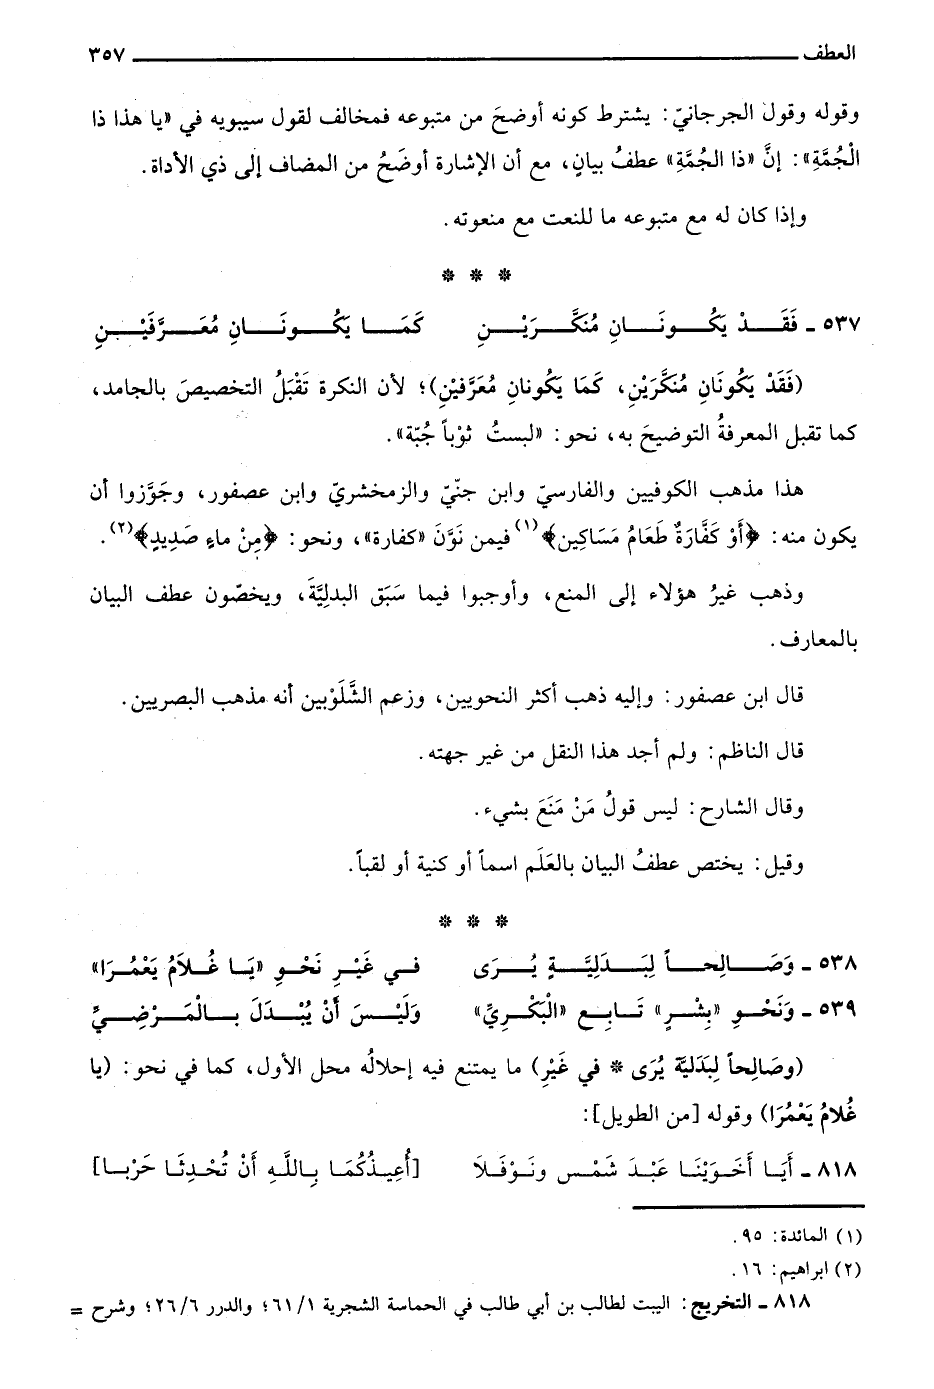 العطف ٣٥٧
وقوله وقول الجرجانيّ: يشترط كونه أوضحَ من متبوعه فمخالف لقول سيبويه في «يا هذا ذا
الْجُمَّةِ»: إنَّ «ذا الجُمَّةِ» عطفُ بيانٍ، مع أن الإشارة أوضَحُ من المضاف إلى ذي الأداة.
وإذا كان له مع متبوعه ما للنعت مع منعوته.
* * *
٥٣٧ ـ فَقَدْ يَكُونَانِ مُنَكَّرَيْنِ كَمَا يَكُونَانِ مُعَرَّفَيْنِ
(فَقَدْ يَكُونَانِ مُنَكَرَيْنِ، كَمَا يَكُونانِ مُعَرَّفيْنِ)؛ لأن النكرة تَقْبَلُ التخصيصَ بالجامد،
كما تقبل المعرفةُ التوضيحَ به، نحو: «لبستُ ثوْباً جُبّة».
هذا مذهب الكوفيين والفارسيّ وابن جنّيّ والزمخشريّ وابن عصفور، وجَوَّزوا أن
يكون منه: ﴿أَوْ كَفَّارَةٌ طَعَامُ مَسَاكِين﴾(١) فيمن نوَّنَ «كفارة»، ونحو: ﴿مِنْ ماءٍ صَدِيدٍ﴾(٢).
وذهب غيرُ هؤلاء إلى المنع، وأوجبوا فيما سَبَق البدليَّةَ، ويخصّون عطف البيان
بالمعارف.
قال ابن عصفور: وإليه ذهب أكثر النحويين، وزعم الشَّلَوْبين أنه مذهب البصريين.
قال الناظم: ولم أجد هذا النقل من غير جهته.
وقال الشارح: ليس قولُ مَنْ مَنَعَ بشيء.
وقيل: يختص عطفُ البيان بالعَلَم اسماً أو كنية أو لقباً.
* * *
٥٣٨ ـ وَصَالِحاً لِبَدَلِيَّةٍ يُرَى في غَيْرِ نَحْوِ «يَا غُلاَمُ يَعْمُرَا»
٥٣٩ ـ وَنَحْوِ «بِشْرٍ» تَابِع «الْبَكْرِيِّ» وَلَيْسَ أَنْ يُبْدَلَ بالْمَرْضِيِّ
(وصَالِحاً لِبَدَليَّة يُرَى * في غَيْرِ) ما يمتنع فيه إحلالُه محل الأول، كما في نحو: (يا
غُلامُ يَعْمُرَا) وقوله [من الطويل]:
٨١٨ ـ أَيَا أَخَوَيْنَا عَبْدَ شَمْس ونَوْفَلَا [أُعِيذُكُمَا بِاللَّهِ أَنْ تُحْدِثَا حَرْبا]
(١) المائدة: ٩٥.
(٢) ابراهيم: ١٦.
٨١٨ ـ التخريج: البيت لطالب بن أبي طالب في الحماسة الشجرية ٦١/١؛ والدرر ٢٦/٦؛ وشرح =